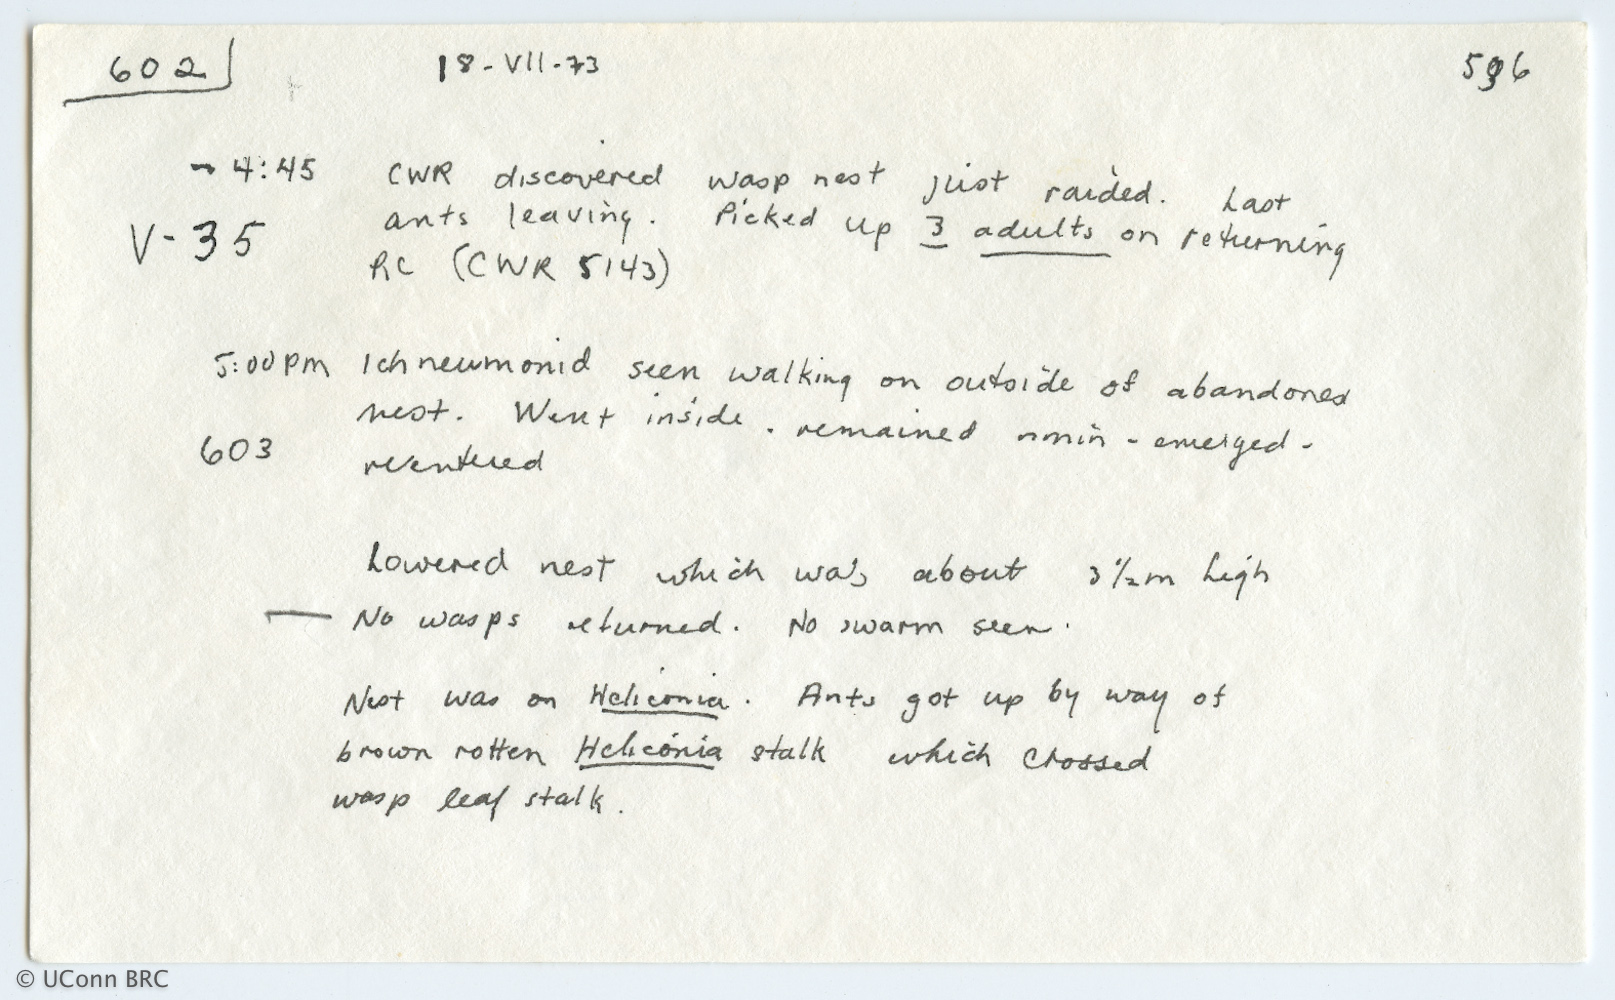 602 18-VII-73 596
~ 4:45 CWR discovered wasp nest just raided. Last
V-35 ants leaving. Picked up 3 adults on returning
RC (CWR 5143)
5:00pm Ichneumonid seen walking on outside of abandoned
nest. Went inside. remained - emerged -
603 reentered
Lowered nest which was about 3 1/2 m high
— No wasps returned. No swarm seen.
Nest was on Heliconia. Ants got up by way of
brown rotten Heliconia stalk which crossed
wasp leaf stalk.
© UConn BRC